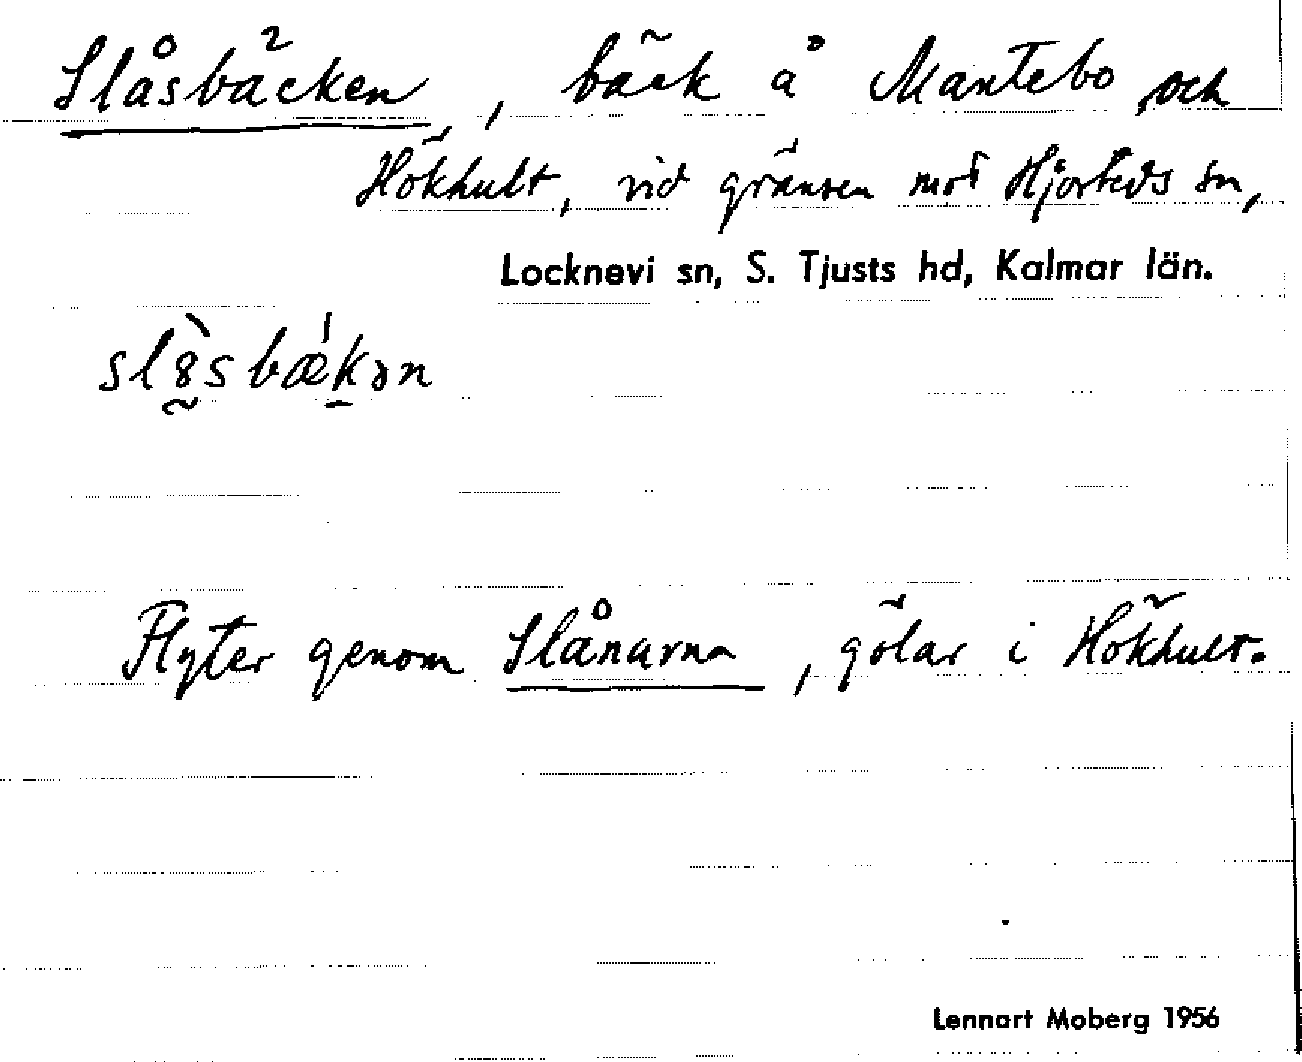 Slåsbäcken, bäck å Mantebo och
Hökhult, vid gränsen mot Hjorteds sn,
Locknevi sn, S. Tjusts hd, Kalmar län.
slò̰sbǽk̠ən
Flyter genom Slånarna, gölar i Hökhult.
Lennart Moberg 1956